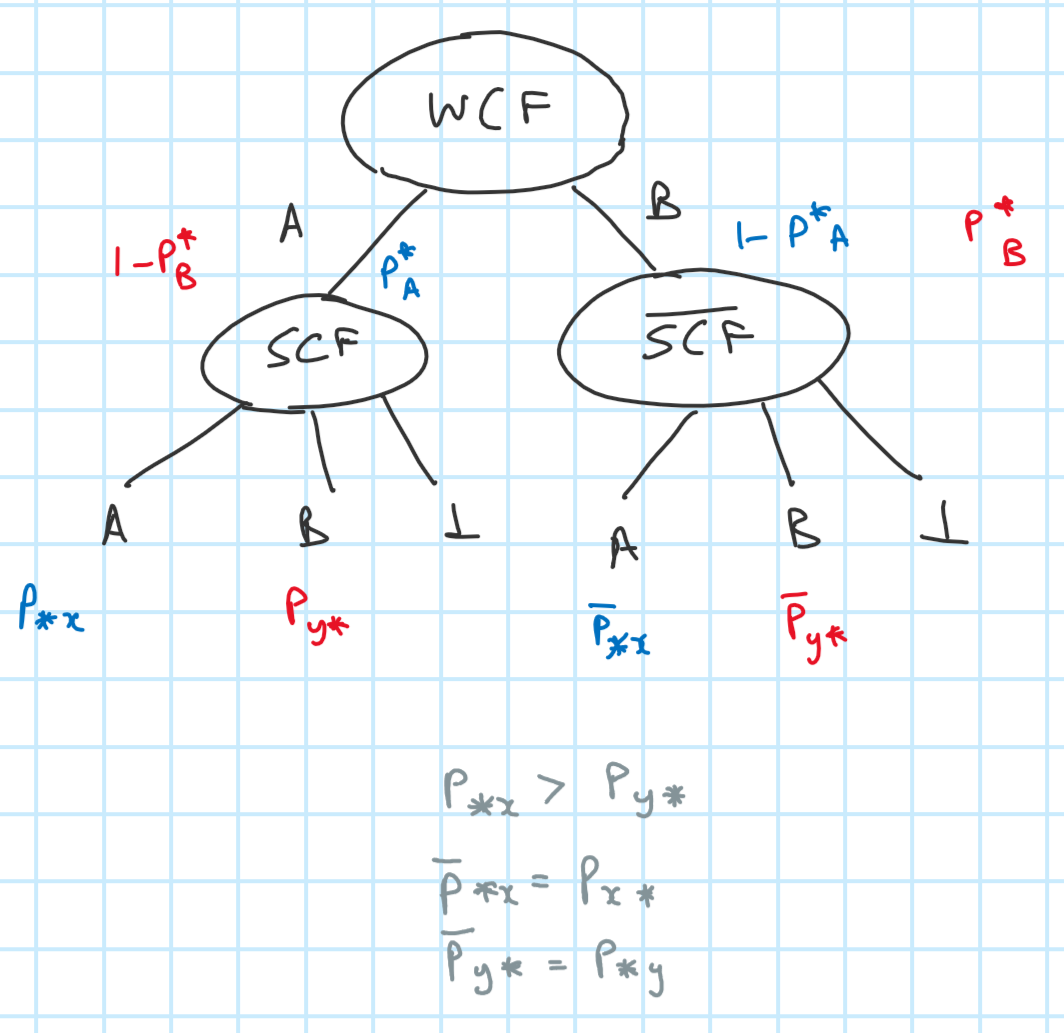 WCF
A
B
1-P*A
P*B
1-P*B
P*A
SCF
S̅C̅F̅
A
B
⊥
A
B
⊥
P*x
Py*
P̅*x
P̅y*
P*x > Py*
P̅*x = Px*
P̅y* = P*y